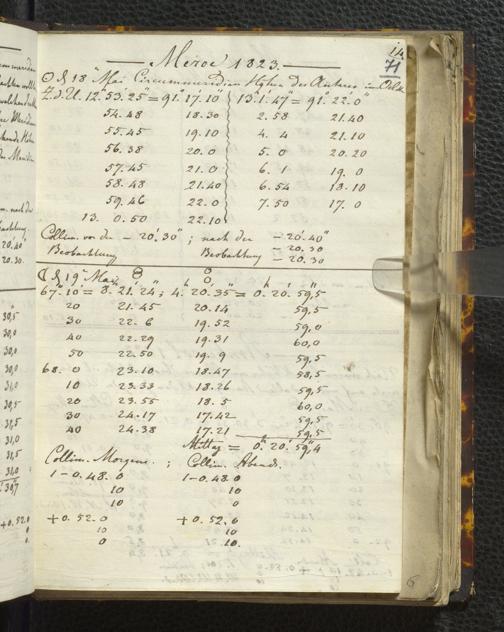 114
71
Meroe 1823.
☉ d. 18ᵗ Mai Circummeridian Höhen des Antares im
Z.d.U. 12ʰ 53.' 25" = 91.° 17.' 10" 13.ʰ 1.' 47" = 91.° 22.' 0"
54.48 18.30 2.58 21.40
55.45 19.10 4. 4 21.10
56.38 20.0 5. 0 20.20
57.45 21.0 6. 1 19. 0
58.48 21.40 6.54 18.10
59.46 22.0 7.50 17. 0
13. 0.50 22.10
Collim. vor der – 20.' 30" ; nach der – 20.' 40"
Beobachtung Beobachtung – 20.30
– 20.30
☾ d. 19 Mai
67.° 10' = 8.ʰ 21.' 24" ; 4.ʰ 20.' 35" = 0.ʰ 20.' 59,"5
20 21.45 20.14 59,5
30 22. 6 19.52 59,0
40 22.29 19.31 60,0
50 22.50 19. 9 59,5
68. 0 23.10 18.47 58,5
10 23.33 18.26 59,5
20 23.55 18. 5 60,0
30 24.17 17.42 59,5
40 24.38 17.21 59,5
Mittag = 0.ʰ 20.' 59,"4
Collim. Morgens. ; Collim. Abends.
1 – 0.48. 0 1 – 0.48. 0
10 10
10 0
+ 0.52. 0 + 0.52. 0
10 10
0 10.
6